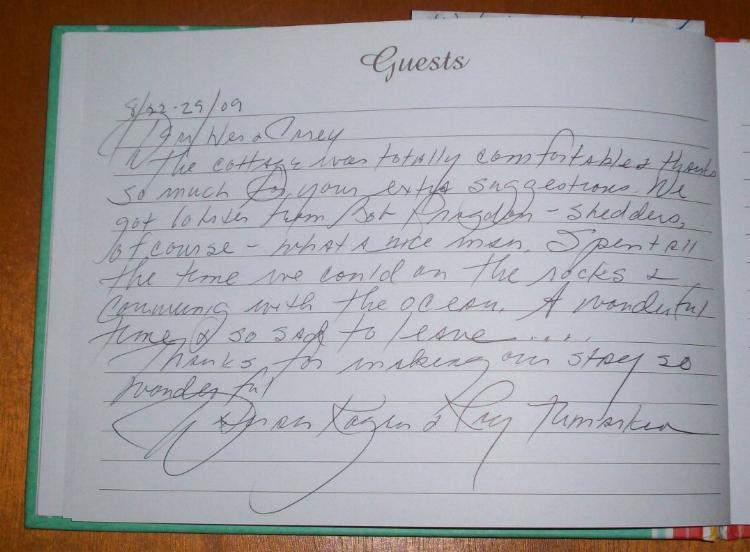 Guests
8/22-29/09
Dear Wes & Correy
The cottage was totally comfortable & thanks
so much for your extra suggestions. We
got lobster from Bob - shedders,
of course - what a nice man. Spent all
the time we could on the rocks &
communing with the ocean. A wonderful
time & so sad to leave....
Thanks for making our stay so
wonderful
& Ray